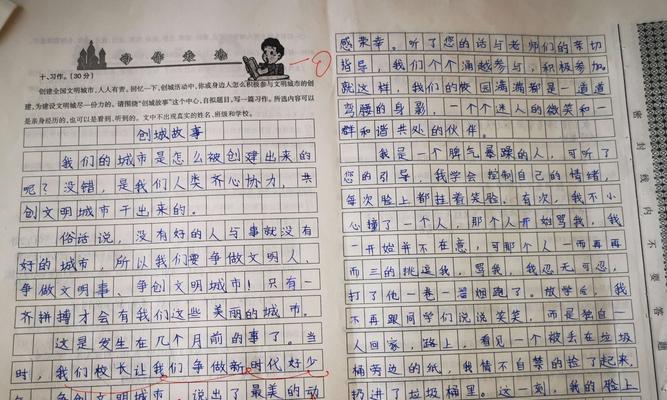 习作乐园
十、习作。(30分)
创建全国文明城市,人人有责。回忆一下,创城活动中,你或身边人怎么积极参与文明城市的创
建,为建设文明城尽一份力的。请围绕“创城故事”这个中心,自拟题目,写一篇习作。所选内容可以
是亲身经历的,也可以是看到、听到的。文中不出现真实的姓名、班级和学校。
创城故事
我们的城市是怎么被创建出来的
呢?没错,是我们人类齐心协力,共
创文明城市干出来的。
俗话说,没有好的人与事就没有
好的城市,所以我们要争做文明人、
争做文明事、争创文明城市!只有一
齐拼搏才会有我们这些美丽的城市。
这是发生在几个月前的事了。当
时,我们校长让我们争做新时代好少
争创文明城市,说出了最美的动
感荣幸。听了您的话与老师们的亲切
指导,我们个个涌越参与,积极参加。
就这样,我们的校园满满都是一道道
弯腰的身影,一个个迷人的微笑和一
群和谐共处的伙伴。
我是一个脾气暴躁的人,可听了
您的引导,我学会控制自己的情绪,
每次脸上都挂着笑脸。有次,我不小
心撞了一个人,那个人开始骂我,我
一开始并不在意,可那个人一而再再
而三的挑逗我,骂我,我忍无可忍,
打了他一巷一着烟跑了。放学后,我
不再跟同学们说说笑笑,而是独自一
人回家,路上,看见一个被丢在垃圾
桶旁边的纸,我情不自禁的捡了起来,
扔进了垃圾桶里。这一刻,我的脸上
密封线内不要答题